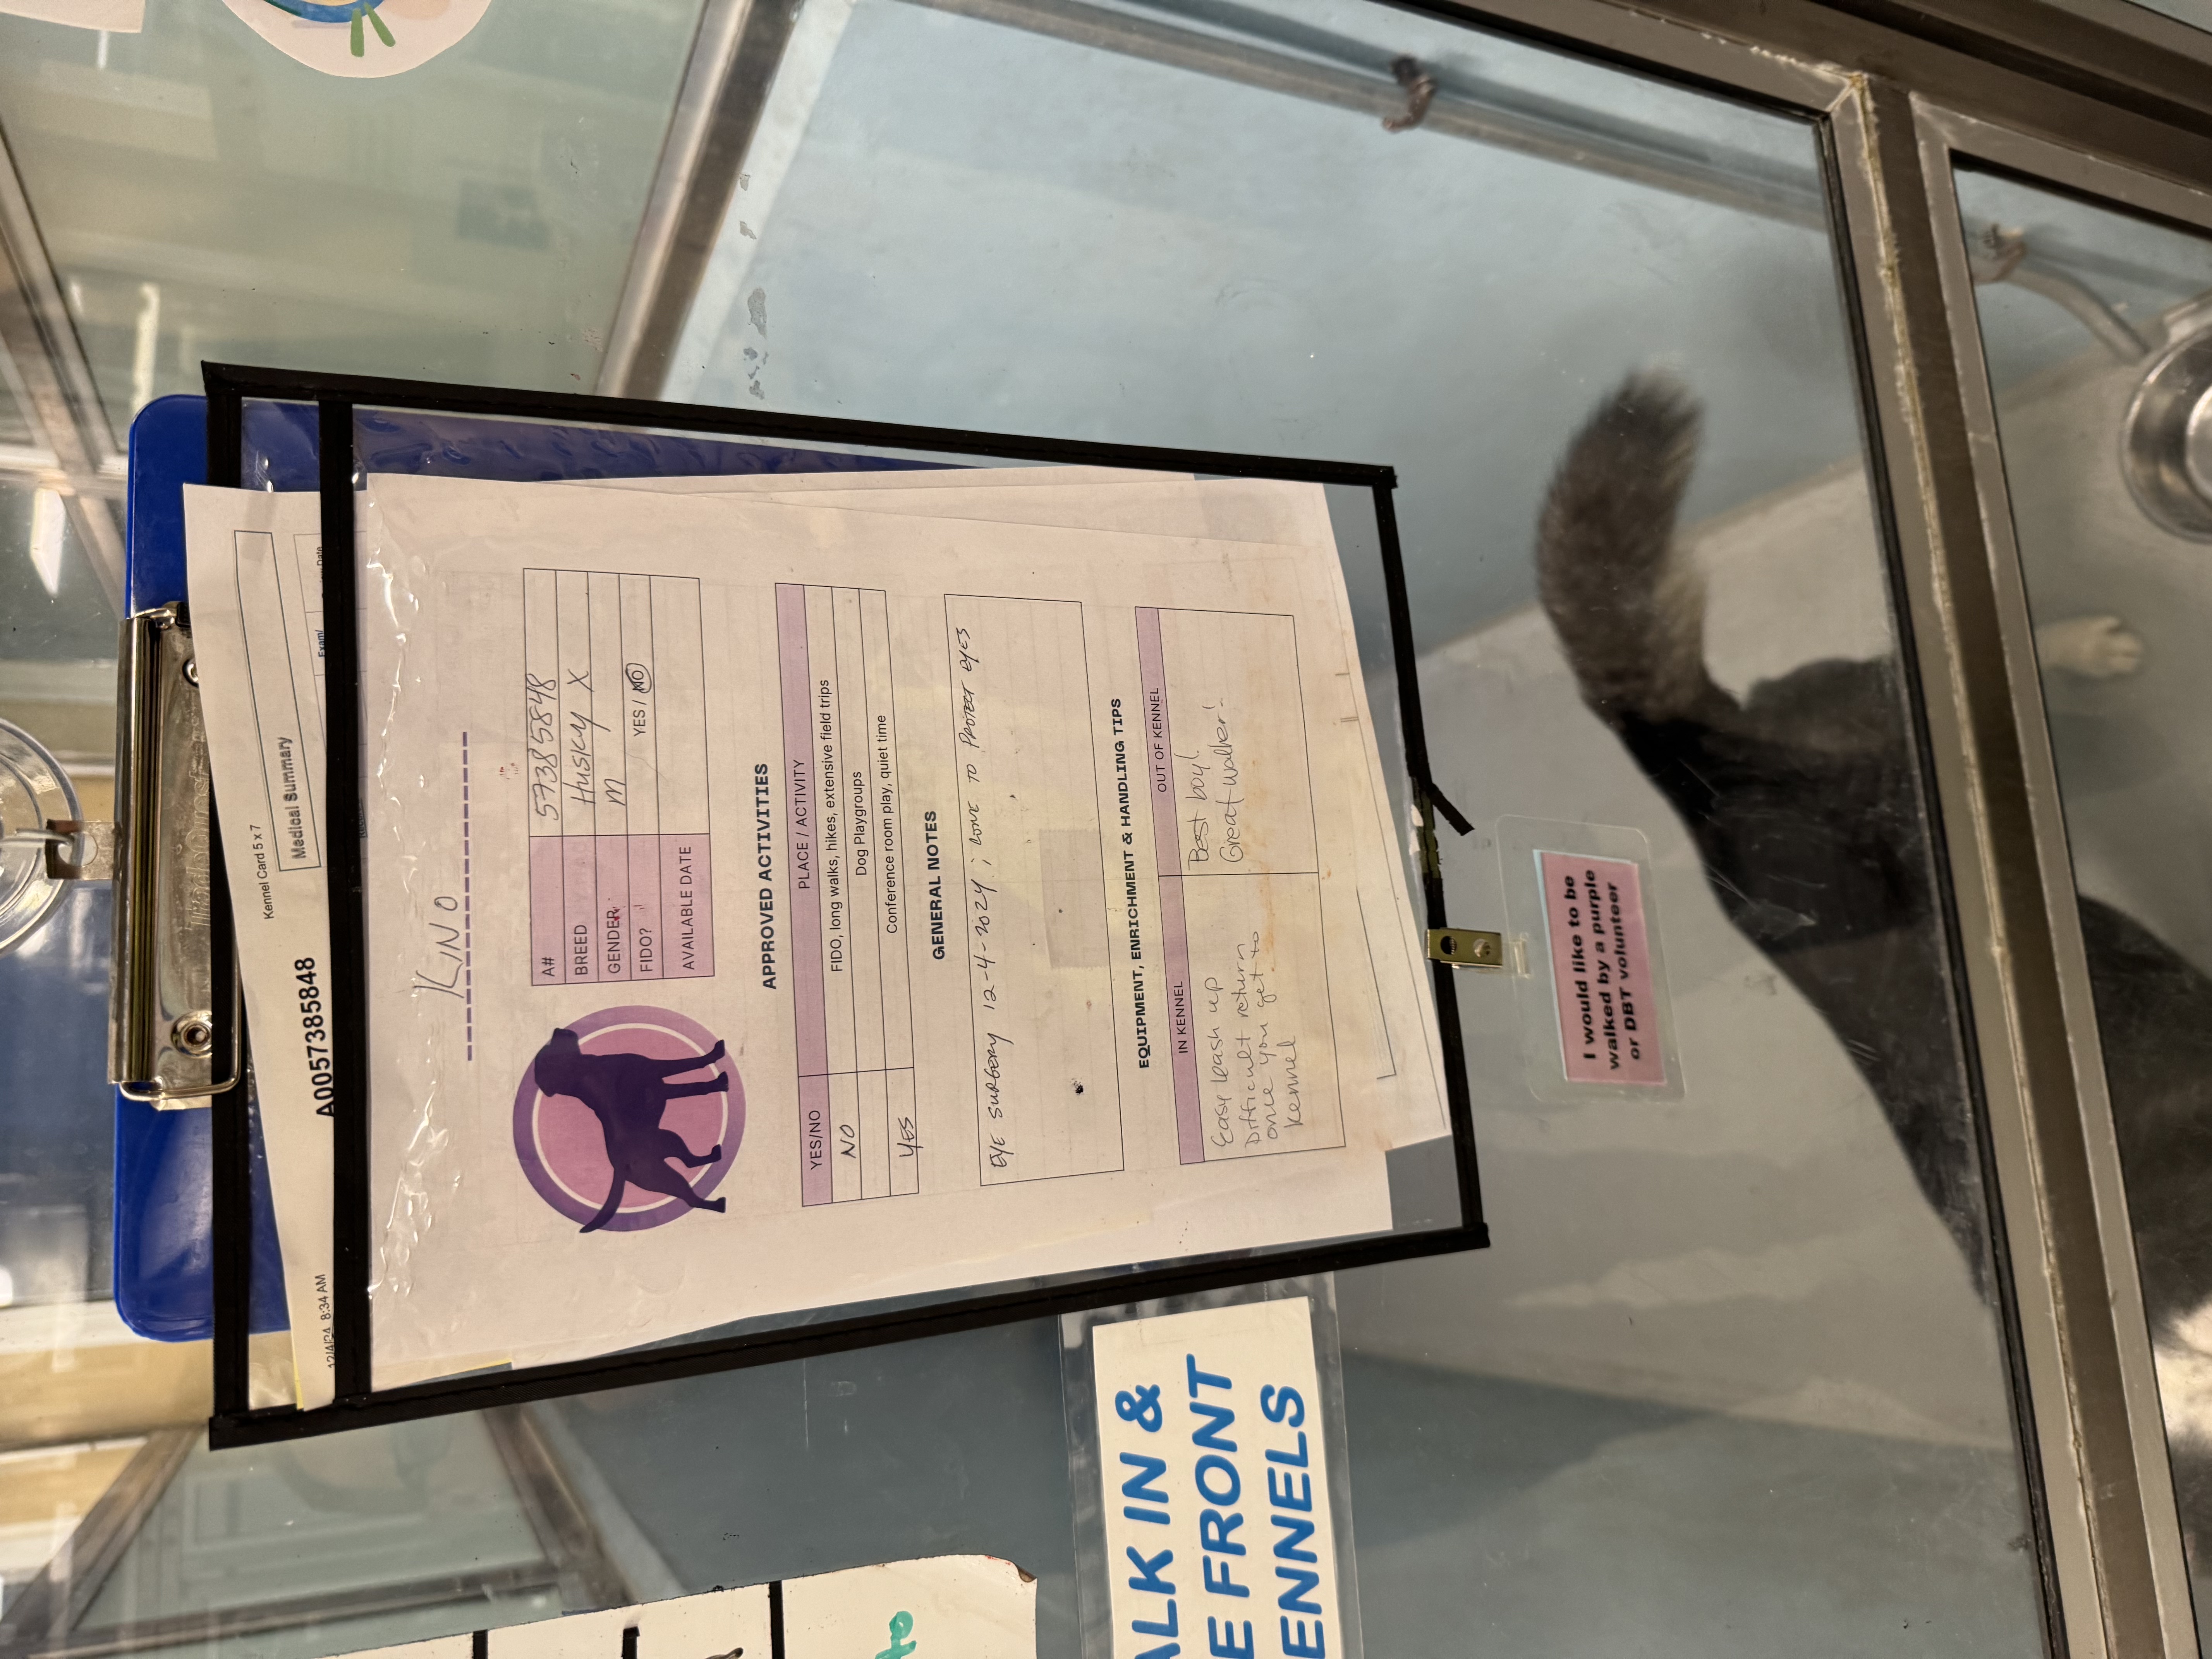 Kennel Card 5 x 7
12/4/24 8:34 AM
A0057385848
Medical Summary
Exam/
Date
KINO
A# 57385848
BREED Husky X
GENDER M
FIDO? YES / NO
AVAILABLE DATE
APPROVED ACTIVITIES
YES/NO PLACE / ACTIVITY
NO FIDO, long walks, hikes, extensive field trips
Dog Playgroups
YES Conference room play, quiet time
GENERAL NOTES
EYE SURGERY 12-4-2024 ; CONE TO PROTECT EYES
EQUIPMENT, ENRICHMENT & HANDLING TIPS
IN KENNEL OUT OF KENNEL
Easy leash up
Difficult return
once you get to
kennel
Best boy!
Great walker!
ALK IN &
E FRONT
ENNELS
I would like to be
walked by a purple
or DBT volunteer